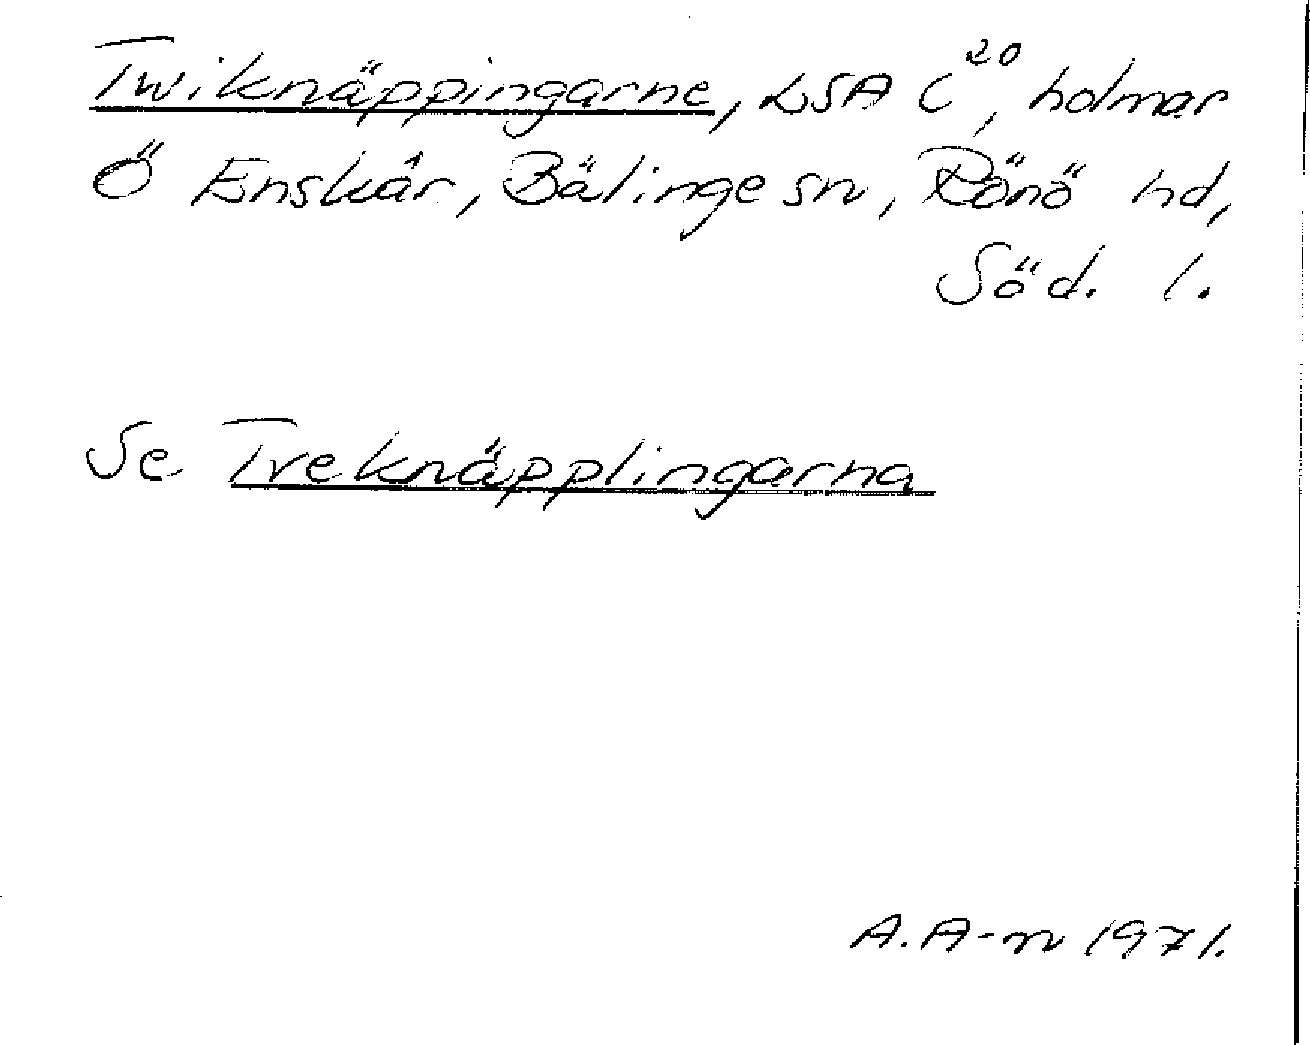 Twiknäppingarne, LSA C²⁰, holmar
Ö Enskär, Bälinge sn, Rönö hd,
Söd. l.
Se Treknäpplingarna
A. A-n 1971.